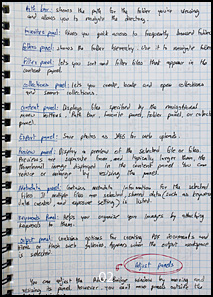 Path bar: shows the path for the folder you're viewing
and allows you to navigate the directory.
Favorites panel: Gives you quick access to frequently browsed folders
Folders panel: shows the folder hierarchy. Use it to navigate folders
Filter panel: lets you sort and filter files that appear in the
content panel
Collections panel: lets you create, locate and open collections
and smart collections
Content panel: Displays files specified by the navigational
menu buttons, Path bar, Favorites panel, Folders panel, or
panel
Export panel: Save photos as JPEG for web uploads
Preview panel: Display a preview of the selected file or files.
Previews are separate from, and typically larger than, the
thumbnail image displayed in the content panel. You can
reduce or enlarge by resizing the panel
Metadata panel: Contains metadata information for the selected
file. If multiple files are selected, shared data (such as keywords
date created and exposure setting) is listed.
Keywords panel: Helps you organize your images by attaching
keywords to them.
Output panel: Contains options for creating PDF documents and
HTML or Flash web galleries, appears when the output workspace
is selected.
Adjust panels
You can adjust the Adobe Bridge window by moving and
resizing its panels; however, you can't move panels outside the